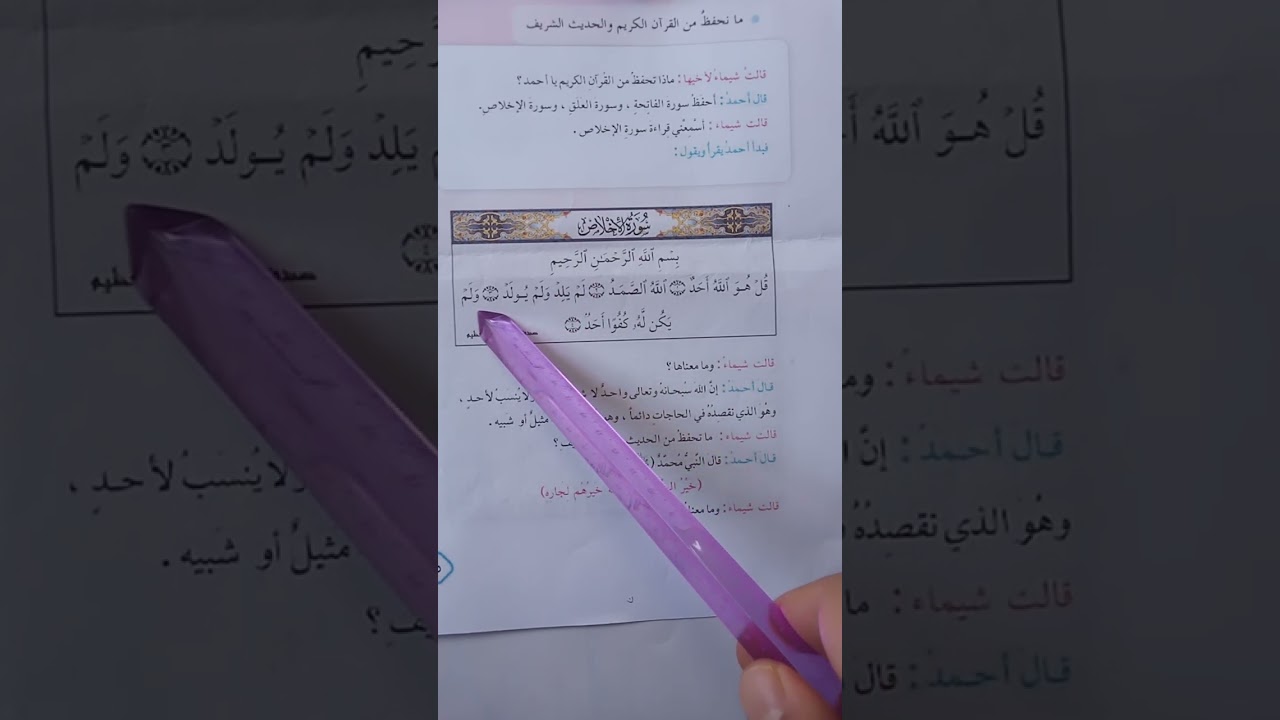 ما نحفظُ من القرآن الكريم والحديث الشريف
قالتْ شيماءُ لأخيها : ماذا تحفظُ من القُرآنِ الكريمِ يا أحمد ؟
قال أحمدُ : أحفظُ سورة الفاتِحةِ ، وسورة العلقِ ، وسورة الإخلاصِ.
قالت شيماءُ : أسْمِعْني قِراءة سورةِ الإخلاص .
فبدأ أحمدُ يقرأ ويقول :
سُورَةُ الإِخْلَاصِ
بِسْمِ ٱللَّهِ ٱلرَّحْمَـٰنِ ٱلرَّحِيمِ
قُلْ هُوَ ٱللَّهُ أَحَدٌ ۝ ٱللَّهُ ٱلصَّمَدُ ۝ لَمْ يَلِدْ وَلَمْ يُولَدْ ۝ وَلَمْ
يَكُن لَّهُۥ كُفُوًا أَحَدٌۢ ۝
قالت شيماءُ : وما معناها ؟
قـال أحمدُ : إنّ الله سبْحانهُ وتعالى واحـدٌ لا ولا يُنسبُ لأحـدٍ ،
وهُو الذي نقصِدُهُ في الحاجاتِ دائماً ، مثيلٌ أو شبيه .
قالت شيماءُ : ما تحفظُ من الحديث
قـال أحمدُ : قال النّبيُّ مُحمّدٌ
(خيْرُ خيرُهُم لجاره)
قالت شيماءُ : وما